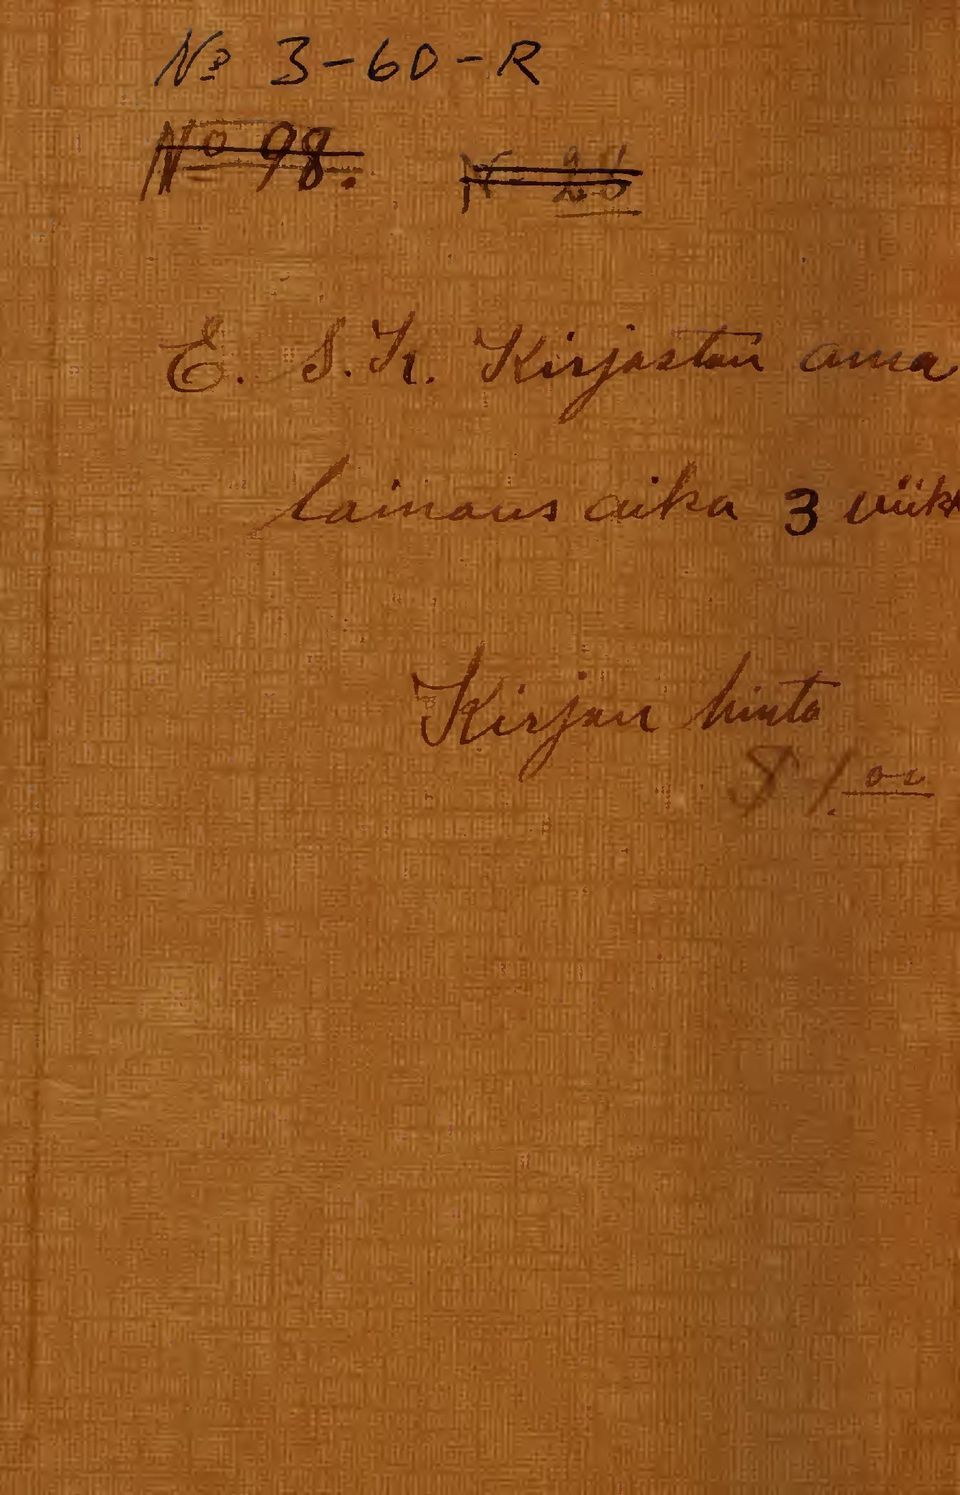 № 3-60-R
№ 98. N 28
E. S. K. Kirjastan ama
lainaus aika 3 viik
Kirjan hinta
$1.00